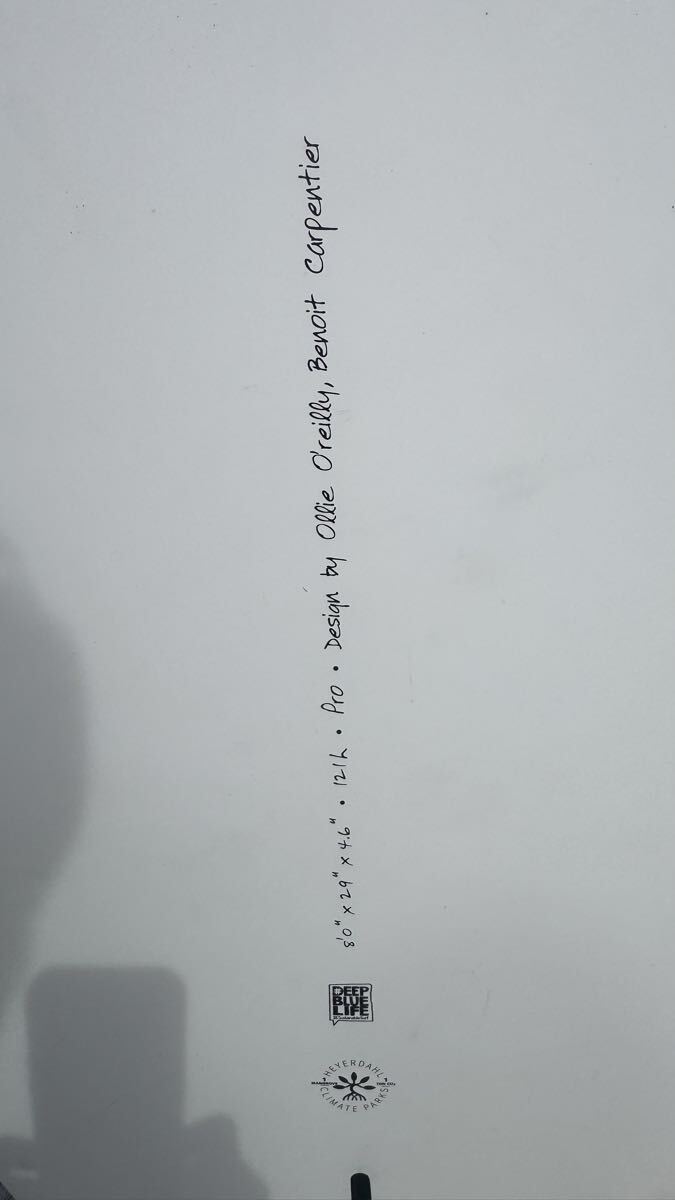 8'0" x 29" x 4.6" • 121L • Pro • Design by Ollie O'reilly, Benoit Carpentier
DEEP
BLUE
LIFE
HEYERDAHL
1 MANGROVE 1 TON CO₂
CLIMATE PARKS